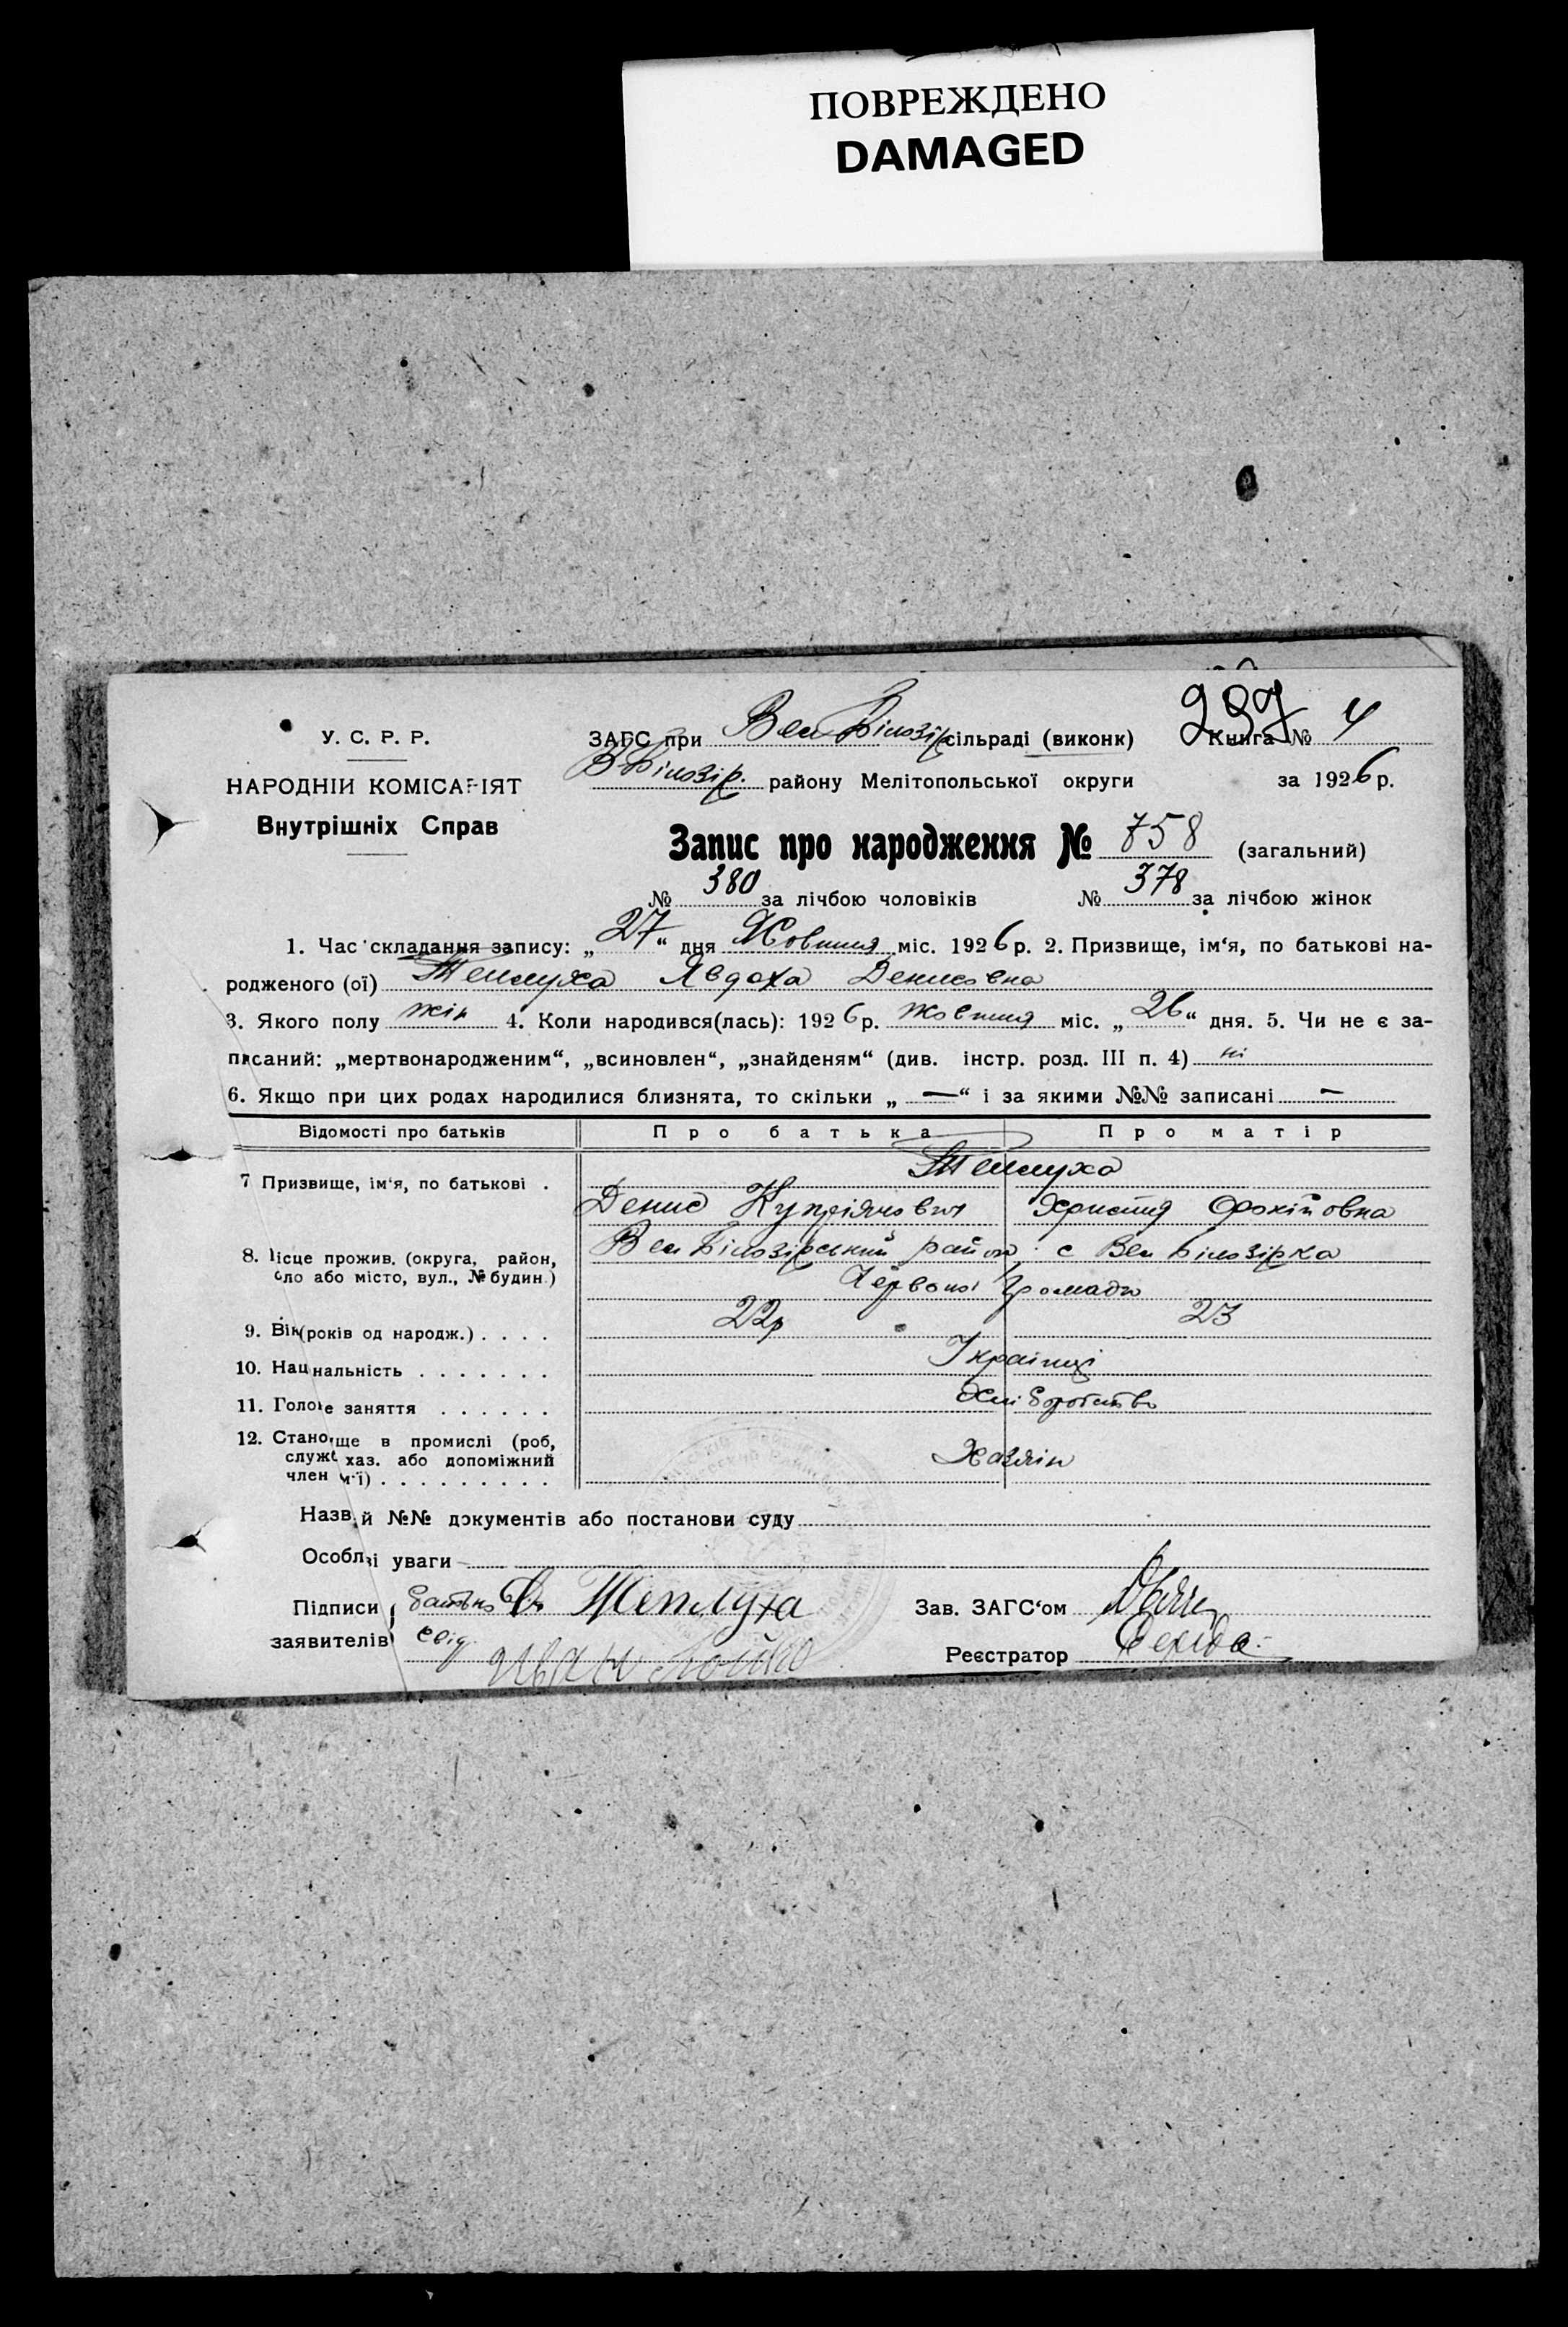 ПОВРЕЖДЕНО
DAMAGED
297
У. С. Р. Р.
НАРОДНІЙ КОМІСАРІЯТ
Внутрішніх Справ
ЗАГС при Вел-Білозір сільраді (виконк) Книга № 4
В-Білозір. району Мелітопольської округи за 1926 р.
Запис про народження № 758 (загальний)
№ 380 за лічбою чоловіків № 378 за лічбою жінок
1. Час складання запису: „27“ дня Жовтня міс. 1926 р. 2. Призвище, ім‘я, по батькові на-
родженого (ої) Теплуха Явдоха Денисовна
3. Якого полу жін 4. Коли народився(лась): 1926 р. жовтня міс. „26“ дня. 5. Чи не є за-
писаний: „мертвонародженим“, „всиновлен“, „знайденям“ (див. інстр. розд. III п. 4) ні
6. Якщо при цих родах народилися близнята, то скільки „ — “ і за якими №№ записані —
Відомості про батьків Про батька Про матір
7 Призвище, ім‘я, по батькові . Теплуха
Денис Купріянович Христия Фокійовна
8. місце прожив. (округа, район, Вел Білозірський район с Вел Білозірка
село або місто, вул., № будин.) Червоної Громади
9. Вік (років од народж.) . . . . 22р 23
10. Національність . . . . . . . Українці
11. Голове заняття . . . . . Хліборобство
12. Становище в промислі (роб,
служб хаз. або допоміжний Хазяін
член м‘ї) . . . . . . . . .
Назв. й №№ документів або постанови суду
Особливі уваги
Підписи батько Теплуха Зав. ЗАГС‘ом
заявителів свід. Иван Реєстратор